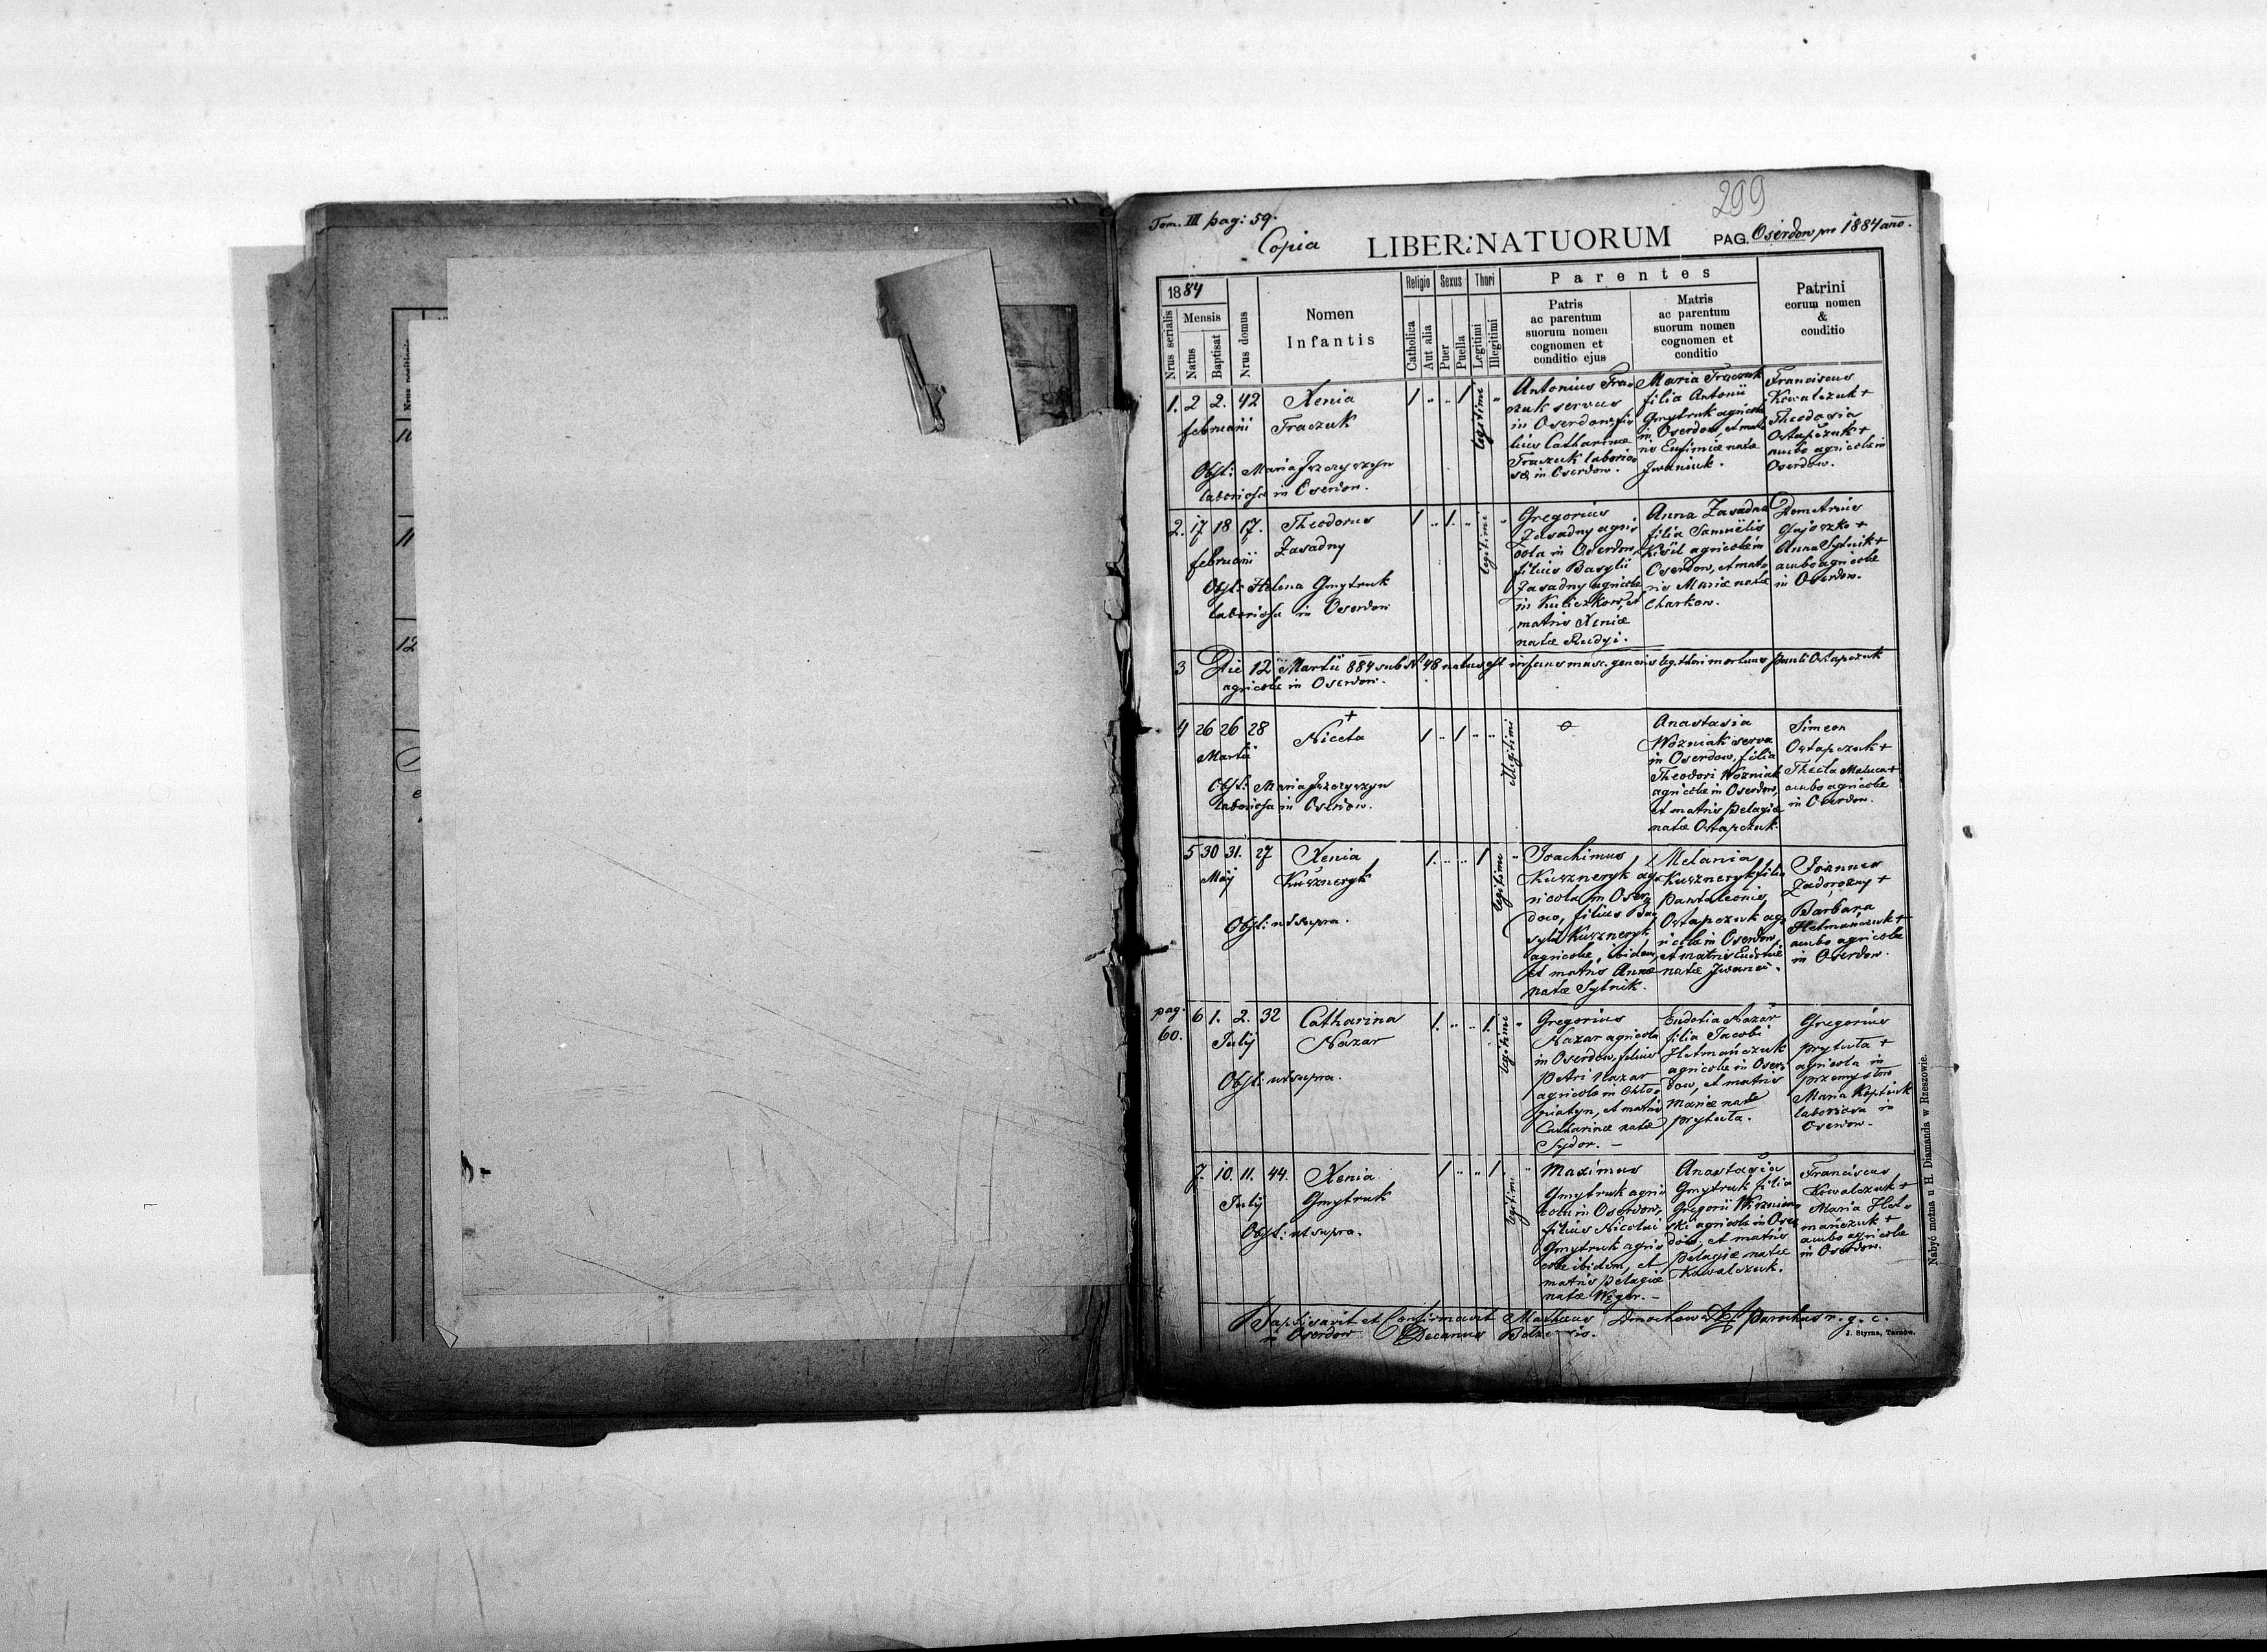 299
Tom. III pag: 59.
Copia LIBER NATUORUM PAG. Oserdow pro 1884 ano.
1884
Mensis
Nrus serialis
Natus
Baptisat
Nrus domus
Nomen
Infantis
Religio
Catholica
Aut alia
Sexus
Puer
Puella
Thori
Legitimi
Illegitimi
Parentes
Patris
ac parentum
suorum nomen
cognomen et
conditio ejus
Matris
ac parentum
suorum nomen
cognomen et
conditio
Patrini
eorum nomen
&
conditio
1. 2 2. 42 Xenia
februarii Traczuk
Obst: Maria
laboriosa in Oserdow.
1 „ „ 1 legitimi „
Antonius Tra-
czuk servus
in Oserdow, fi-
lius Catharinae
Traczuk laborio-
sae in Oserdow.
Maria Traczuk
filia Antonii
Gmytruk agricolae
in Oserdow, et mat-
ris Eufimiae natae
Iwaniuk.
Franciscus
Kowalczuk +
Theodosia
Ostapczuk +
ambo agricolae in
Oserdow.
2. 17 18 17. Theodorus
februarii Zasadny
Obst: Helena Gmytruk
laboriosa in Oserdow
1 „ 1. „ legitimi „
Gregorius
Zasadny agri-
cola in Oserdow,
filius Basylii
Zasadny agricolae
in Kuliczkow, et
matris Xeniae
natae Rudyi.
Anna Zasadna
filia Samuëlis
Kisil agricolae in
Oserdow, et mat-
ris Mariae natae
Charkow.
Demetrius
+
Anna Sytnik +
ambo agricolae
in Oserdow.
3 Die 12 Martii 884 sub N. 48 natus est infans masc. generis leg. thori mortuus Pauli Ostapczuk
agricolae in Oserdow.
4 26 26 28 +
Niceta
Martii
Obst: Maria
laboriosa in Oserdow.
1 „ 1 „ „ illegitimi
o
Anastasia
Wozniak serva
in Oserdow, filia
Theodori Wozniak
agricolae in Oserdow,
et matris Pelagiae
natae Ostapczuk.
Simeon
Ostapczuk +
Thecla +
ambo agricolae
in Oserdow.
5 30 31. 27 Xenia
Maij Kuszneryk
Obst: ut supra.
1. „ „ 1 legitimi „
Joachimus
Kuszneryk ag-
ricola in Oser-
dow, filius Ba-
sylii Kuszneryk
agricolae ibidem,
et matris Annae
natae Sytnik.
Melania
Kuszneryk filia
Pantaleonis
Ostapczuk ag-
ricolae in Oserdow,
et matris
natae
Joannes
Zadorozny +
Barbara
Hetmańczuk +
ambo agricolae
in Oserdow.
pag.
60.
6 1. 2. 32 Catharina
Julij Nazar
Obst: ut supra.
1. „ „ 1. legitimi „
Gregorius
Nazar agricola
in Oserdow, filius
Petri Nazar
agricolae in Chło-
piatyn, et matris
Catharinae natae
Sydor. –
Eudotia Nazar
filia Jacobi
Hetmańczuk
agricolae in Oser-
dow, et matris
Mariae natae
Prytuła.
Gregorius
Prytuła +
agricola in
Przemysłow
Maria
laboriosa in
Oserdow.
7. 10. 11. 44. Xenia
Julij Gmytruk
Obst: ut supra.
1 „ „ 1. legitimi „
Maximus
Gmytruk agri-
cola in Oserdow,
filius Nicolai
Gmytruk agri-
colae ibidem, et
matris Pelagiae
natae Węger. –
Anastasia
Gmytruk filia
Gregorii
agricolae in Oser-
dow, et matris
Pelagiae natae
Kowalczuk.
Franciscus
Kowalczuk +
Maria Het-
mańczuk +
ambo agricolae
in Oserdow.
Baptisavit et Confirmavit Mathaeus Parochus r. g. c.
in Oserdow Decanus
J. Styrna, Tarnów.
Nabyć można u H. Diamanda w Rzeszowie.
10
11
12